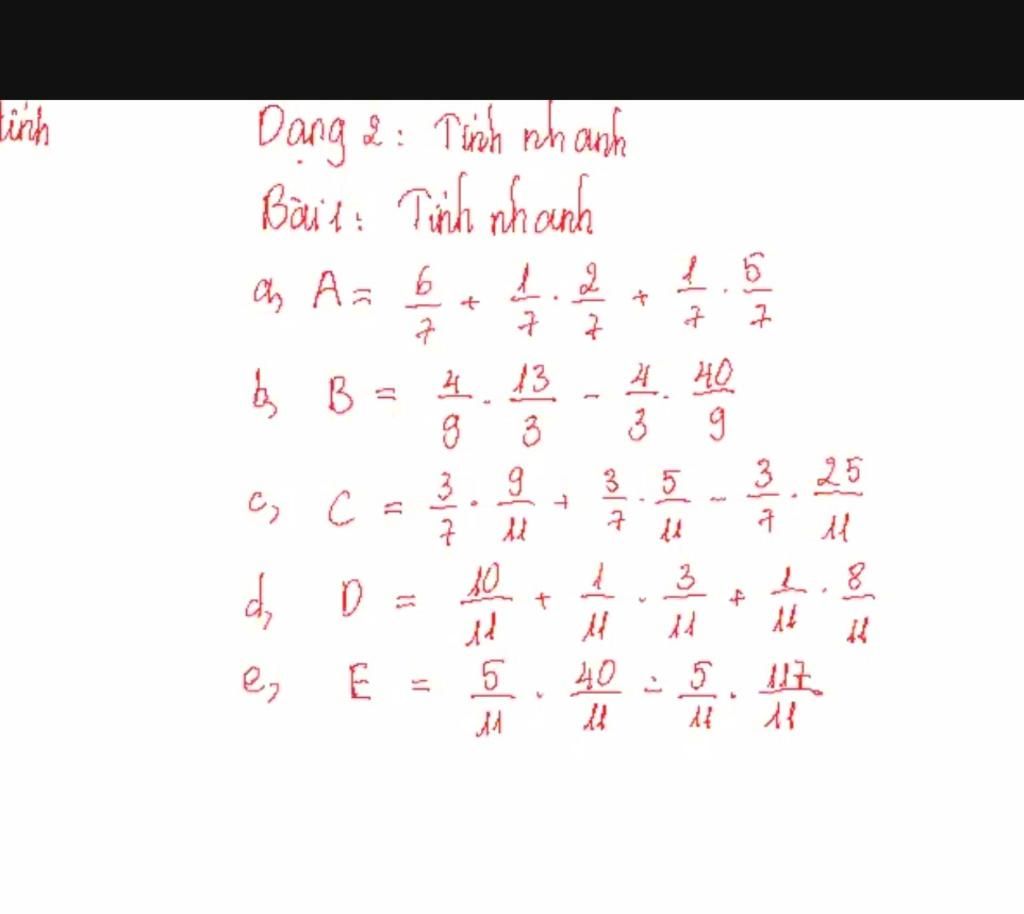 tính
Dạng 2: Tính nhanh
Bài 1: Tính nhanh
a, A = 6/7 + 1/7 . 2/7 + 1/7 . 5/7
b, B = 4/9 . 13/3 - 4/3 . 40/9
c, C = 3/7 . 9/11 + 3/7 . 5/11 - 3/7 . 25/11
d, D = 10/11 + 1/11 . 3/11 + 1/11 . 8/11
e, E = 5/11 . 40/11 - 5/11 . 117/11